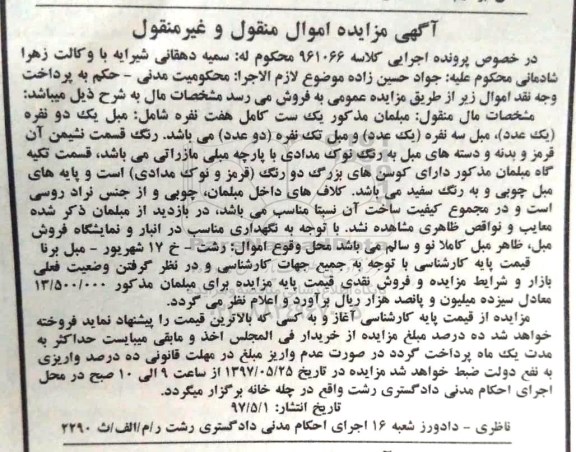 آگهی مزایده اموال منقول و غیرمنقول
در خصوص پرونده اجرایی کلاسه ۹۶۱۰۶۶ محکوم له: سمیه دهقانی شیرایه با وکالت زهرا
شادمانی محکوم علیه: جواد حسین زاده موضوع لازم الاجرا: محکومیت مدنی - حکم به پرداخت
وجه نقد اموال زیر از طریق مزایده عمومی به فروش می رسد مشخصات مال به شرح ذیل میباشد:
مشخصات مال منقول: مبلمان مذکور یک ست کامل هفت نفره شامل: مبل یک دو نفره
(یک عدد)، مبل سه نفره (یک عدد) و مبل تک نفره (دو عدد) می باشد. رنگ قسمت نشیمن آن
قرمز و بدنه و دسته های مبل به رنگ نوک مدادی با پارچه مبلی مازراتی می باشد، قسمت تکیه
گاه مبلمان مذکور دارای کوسن های بزرگ دو رنگ (قرمز و نوک مدادی) است و پایه های
مبل چوبی و به رنگ سفید می باشد. کلاف های داخل مبلمان، چوبی و از جنس نراد روسی
است و در مجموع کیفیت ساخت آن نسبتا مناسب می باشد، در بازدید از مبلمان ذکر شده
معایب و نواقص ظاهری مشاهده نشد. با توجه به نگهداری مناسب در انبار و نمایشگاه فروش
مبل، ظاهر مبل کاملا نو و سالم می باشد محل وقوع اموال: رشت - خ ۱۷ شهریور - مبل برنا
قیمت پایه کارشناسی با توجه به جمیع جهات کارشناسی و در نظر گرفتن وضعیت فعلی
بازار و شرایط مزایده و فروش نقدی قیمت پایه مزایده برای مبلمان مذکور ۱۳/۵۰۰/۰۰۰
معادل سیزده میلیون و پانصد هزار ریال برآورد و اعلام نظر می گردد.
مزایده از قیمت پایه کارشناسی آغاز و به کسی که بالاترین قیمت را پیشنهاد نماید فروخته
خواهد شد ده درصد مبلغ مزایده از خریدار فی المجلس اخذ و مابقی میبایست حداکثر به
مدت یک ماه پرداخت گردد در صورت عدم واریز مبلغ در مهلت قانونی ده درصد واریزی
به نفع دولت ضبط خواهد شد مزایده در تاریخ ۱۳۹۷/۰۵/۲۵ از ساعت ۹ الی ۱۰ صبح در محل
اجرای احکام مدنی دادگستری رشت واقع در چله خانه برگزار میگردد.
تاریخ انتشار: ۹۷/۵/۱
ناظری - دادورز شعبه ۱۶ اجرای احکام مدنی دادگستری رشت ر/م/الف/ث ۲۲۹۰